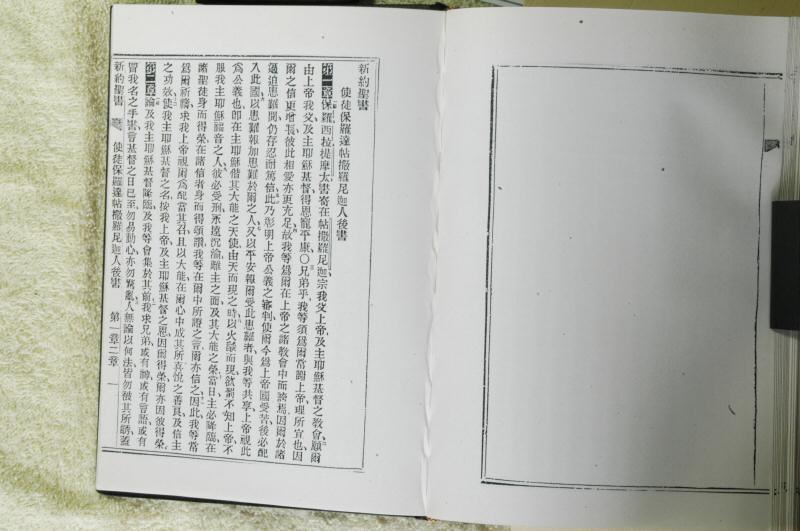 新約聖書
使徒保羅達帖撒羅尼迦人後書
第一章保羅西拉提摩太書寄在帖撒羅尼迦宗我父上帝及主耶穌基督之教會、願爾
由上帝我父及主耶穌基督、得恩寵平康、〇兄弟乎、我等須爲爾常謝上帝、理所宜也、因
爾之信更增長、彼此相愛亦更充足、故我等爲爾在上帝之諸教會中而誇焉、因爾於諸
逼迫患難間、仍存忍耐篤信、此乃彰明上帝公義之審判、使爾今爲上帝國受苦、後必配
入此國、以患難報加患難於爾之人、又以平安報爾受此患難者、與我等共享、上帝視此
爲公義也、即在主耶穌偕其大能之天使、由天而現之時、以火㷔而現、欲罰不知上帝、不
服我主耶穌福音之人、彼必受刑永遠沉淪、離主之面、及其大能之榮、當日主必降臨、在
諸聖徒身而得榮、在諸信者身而得頌讚、我等在爾中所證之言、爾亦信之、因此、我等常
爲爾祈禱、求我上帝視爾爲配當其召、且以大能在爾心中成其所喜悅之善良、及信主
之功效、使我主耶穌基督之名、按我上帝及主耶穌基督之恩、因爾得榮、爾亦因彼得榮、
第二章論及我主耶穌基督降臨、及我等會集於其前、我求兄弟、或有神、或有言語、或有
冒我名之手書、言基督之日已至、勿易動心、亦勿驚亂、人無論以何法、皆勿被其所誘、蓋
新約聖書 使徒保羅達帖撒羅尼迦人後書 第一章二章 一